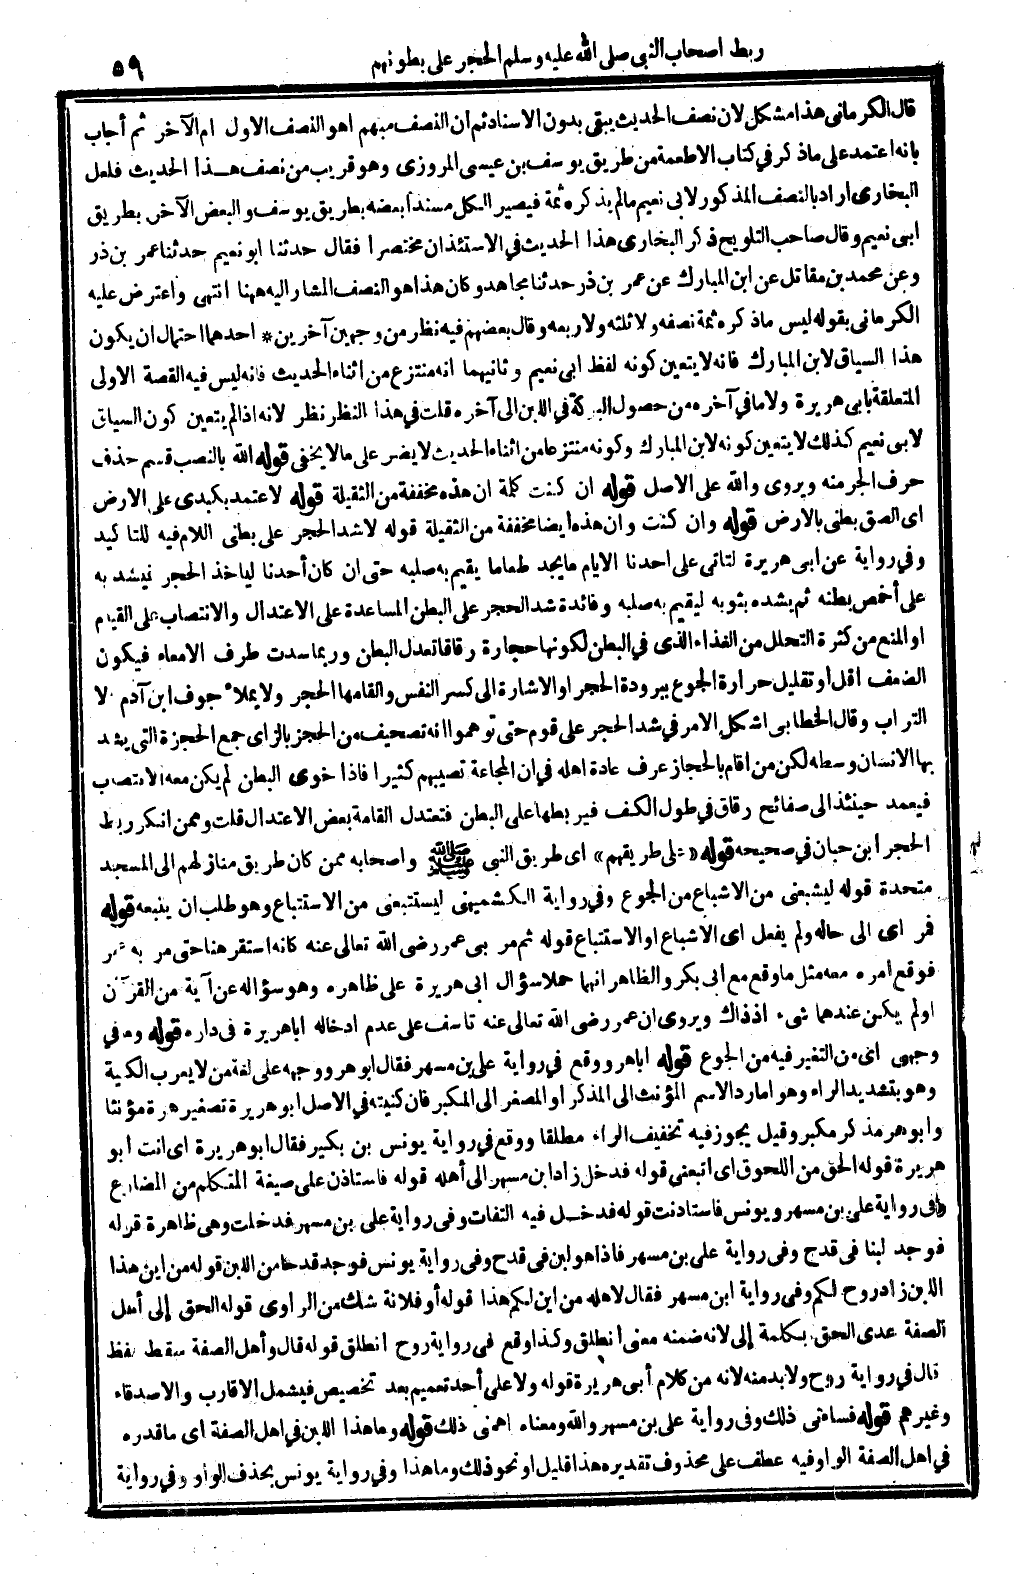 ربط اصحاب النبي صلى الله عليه وسلم الحجر على بطونهم ٥٩
قال الكرماني هذا مشكل لان نصف الحديث يبقى بدون الاسناد ثم ان النصف مبهم اهو النصف الاول ام الآخر ثم أجاب
بانه اعتمد على ما ذكر في كتاب الاطعمة من طريق يوسف بن عيسى المروزى وهو قريب من نصف هذا الحديث فلعل
البخارى اراد بالنصف المذكور لابى نعيم ما لم يذكره ثمة فيصير الكل مسندا بعضه بطريق يوسف والبعض الآخر بطريق
ابى نعيم وقال صاحب التلويح ذكر البخارى هذا الحديث في الاستئذان مختصرا فقال حدثنا ابو نعيم حدثنا عمر بن ذر
وعن محمد بن مقاتل عن ابن المبارك عن عمر بن ذر حدثنا مجاهد وكان هذا هو النصف المشار اليه ههنا انتهى واعترض عليه
الكرماني بقوله ليس ما ذكره ثمة نصفه ولا ثلثه ولا ربعه وقال بعضهم فيه نظر من وجهين آخرين * احدهما احتمال ان يكون
هذا السياق لابن المبارك فانه لا يتعين كونه لفظ ابى نعيم وثانيهما انه منتزع من اثناء الحديث فانه ليس فيه القصة الاولى
المتعلقة بابى هريرة ولا ما في آخره من حصول البركة في اللبن الى آخره قلت في هذا النظر نظر لانه اذا لم يتعين كون السياق
لابى نعيم كذلك لا يتعين كونه لابن المبارك وكونه منتزعا من اثناء الحديث لا يضر على ما لا يخفى قوله الله بالنصب قسم حذف
حرف الجر منه ويروى والله على الاصل قوله ان كنت كلمة ان هذه مخففة من الثقيلة قوله لاعتمد بكبدى على الارض
اى الصق بطنى بالارض قوله وان كنت وان هذه ايضا مخففة من الثقيلة قوله لاشد الحجر على بطنى اللام فيه للتاكيد
وفي رواية عن ابى هريرة لتاتى على احدنا الايام ما يجد طعاما يقيم به صلبه حتى ان كان أحدنا لياخذ الحجر فيشد به
على أخمص بطنه ثم يشده بثوبه ليقيم به صلبه وفائدة شد الحجر على البطن المساعدة على الاعتدال والانتصاب على القيام
او المنع من كثرة التحلل من الغذاء الذى في البطن لكونها حجارة رقاقا تعدل البطن وربما سدت طرف الامعاء فيكون
الضعف اقل او تقليل حرارة الجوع ببرودة الحجر او الاشارة الى كسر النفس والقامها الحجر ولا يملأ جوف ابن آدم الا
التراب وقال الخطابى اشكل الامر في شد الحجر على قوم حتى توهموا انه تصحيف من الحجز بالزاى جمع الحجزة التى يشد
بها الانسان وسطه لكن من اقام بالحجاز عرف عادة اهله في ان المجاعة تصيبهم كثيرا فاذا خوى البطن لم يكن معه الانتصاب
فيعمد حينئذ الى صفائح رقاق في طول الكف فيربطها على البطن فتعتدل القامة بعض الاعتدال قلت وممن انكر ربط
الحجر ابن حبان في صحيحه قوله «على طريقهم» اى طريق النبى ﷺ واصحابه ممن كان طريق منازلهم الى المسجد
متحدة قوله ليشبعنى من الاشباع من الجوع وفي رواية الكشميهنى ليستتبعنى من الاستتباع وهو طلب ان يتبعه قوله
فمر اى الى حاله ولم يفعل اى الاشباع او الاستتباع قوله ثم مر بى عمر رضى الله تعالى عنه كانه استقر هنا حتى مر به عمر
فوقع امره معه مثل ما وقع مع ابى بكر والظاهر انهما حملا سؤال ابى هريرة على ظاهره وهو سؤاله عن آية من القرآن
او لم يكن عندهما شىء اذ ذاك ويروى ان عمر رضى الله تعالى عنه تاسف على عدم ادخاله اباهريرة في داره قوله وما في
وجهى اى من التغير فيه من الجوع قوله اباهر ووقع في رواية على بن مسهر فقال ابو هر ووجهه على لغة من لا يعرب الكنية
وهو بتشديد الراء وهو اما رد الاسم المؤنث الى المذكر او المصغر الى المكبر فان كنيته في الاصل ابو هريرة تصغير هرة مؤنثا
وابو هر مذكر مكبر وقيل يجوز فيه تخفيف الراء مطلقا ووقع في رواية يونس بن بكير فقال ابو هريرة اى انت ابو
هريرة قوله الحق من اللحوق اى اتبعنى قوله فدخل زاد ابن مسهر الى أهله قوله فاستاذن على صيغة المتكلم من المضارع
وفى رواية على بن مسهر ويونس فاستاذنت قوله فدخل فيه التفات وفى رواية على بن مسهر فدخلت وهى ظاهرة قوله
فوجد لبنا فى قدح وفى رواية على بن مسهر فاذا هو لبن فى قدح وفى رواية يونس فوجد قدحا من اللبن قوله من اين هذا
اللبن زاد روح لكم وفى رواية ابن مسهر فقال لاهله من اين لكم هذا قوله أو فلانة شك من الراوى قوله الحق إلى أهل
الصفة عدى الحق بكلمة إلى لانه ضمنه معنى انطلق وكذا وقع فى رواية روح انطلق قوله قال وأهل الصفة سقط لفظ
قال في رواية روح ولا بد منه لانه من كلام أبى هريرة قوله ولا على أحد تعميم بعد تخصيص فيشمل الاقارب والاصدقاء
وغيرهم قوله فساءنى ذلك وفى رواية على بن مسهر والله ومعناه اهمنى ذلك قوله وما هذا اللبن في اهل الصفة اى ما قدره
في اهل الصفة الواو فيه عطف على محذوف تقديره هذا قليل او نحو ذلك وما هذا وفي رواية يونس بحذف الواو وفي رواية